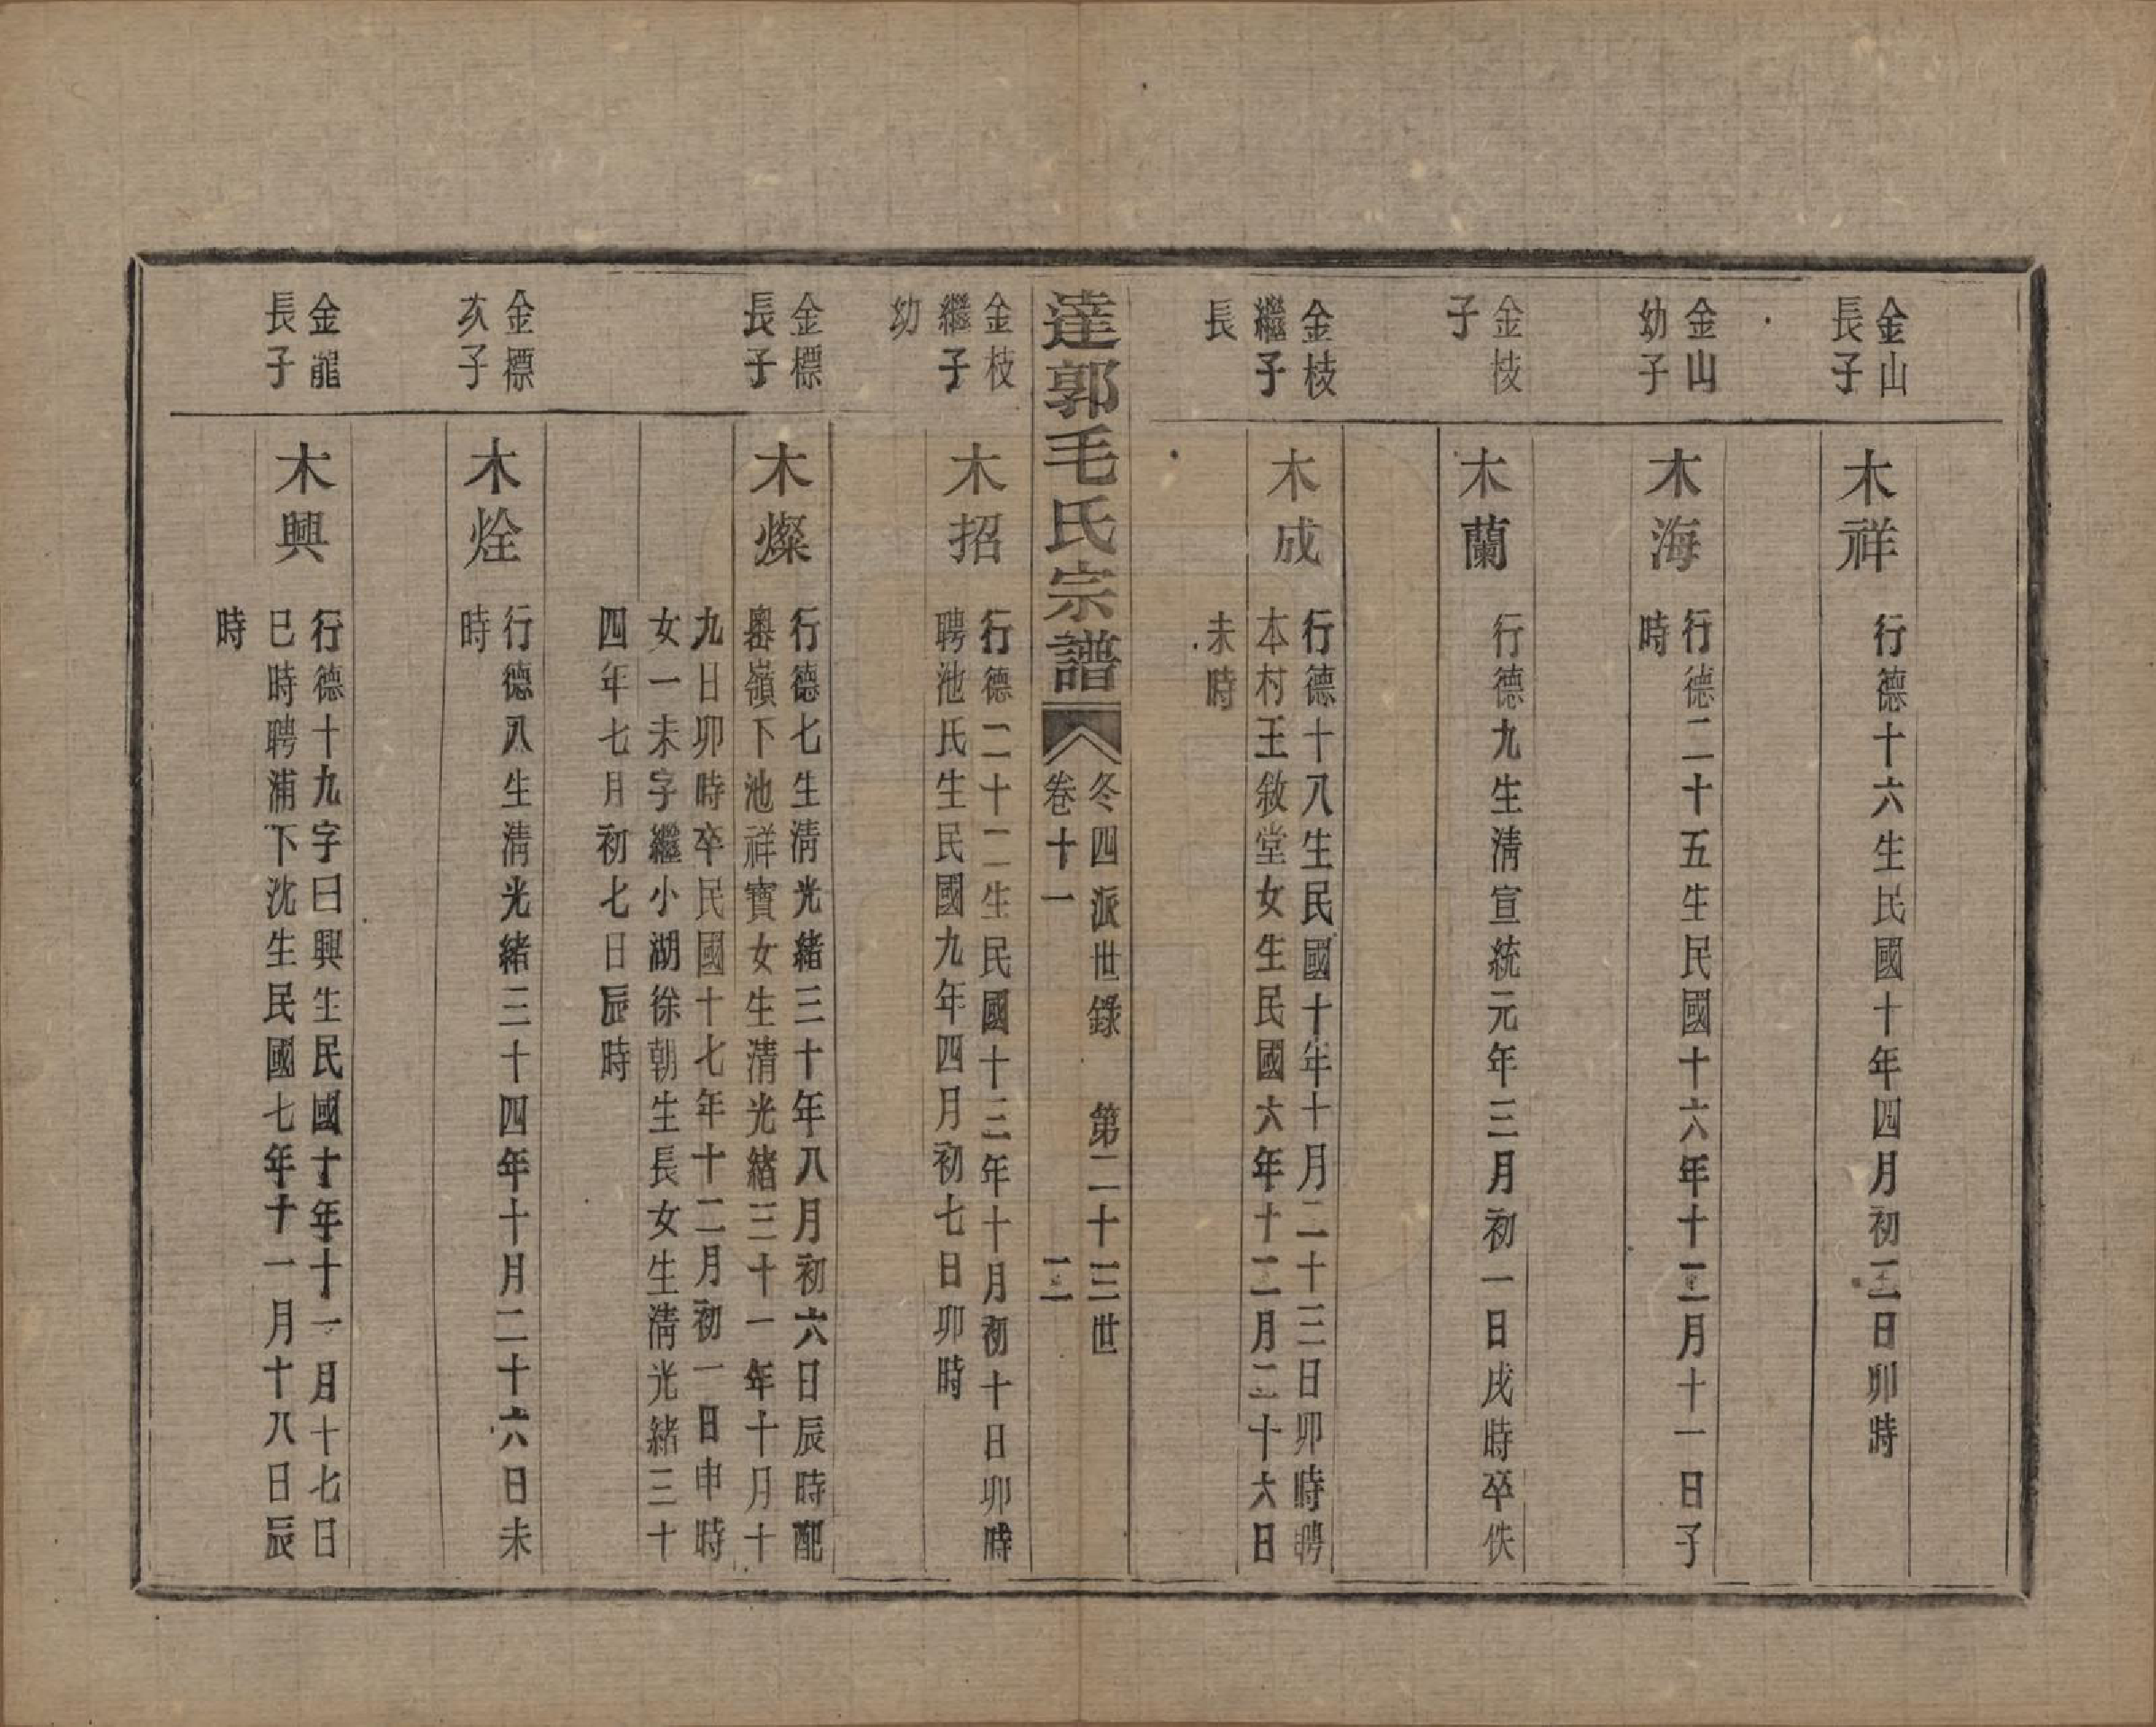 金山
長子
木祥
行德十六生民國十年四月初三日卯時
金山
幼子
木海
行德二十五生民國十六年十二月十一日子
時
金枝
子
木蘭
行德九生淸宣統元年三月初一日戌時卒佚
金枝
繼子
長
木成
行德十八生民國十年十月二十三日卯時聘
本村王敘堂女生民國六年十二月二十六日
未時
達郭毛氏宗譜
冬四派世錄 第二十三世
卷十一 二
金枝
繼子
幼
木招
行德二十二生民國十三年十月初十日卯時
聘池氏生民國九年四月初七日卯時
金標
長子
木燦
行德七生淸光緒三十年八月初六日辰時配
嶴嶺下池祥寶女生淸光緒三十一年十月十
九日卯時卒民國十七年十二月初一日申時
女一未字繼小湖徐朝生長女生淸光緒三十
四年七月初七日辰時
金標
次子
木烇
行德八生淸光緒三十四年十月二十六日未
時
金龍
長子
木興
行德十九字曰興生民國十年十一月十七日
巳時聘浦下沈生民國七年十一月十八日辰
時